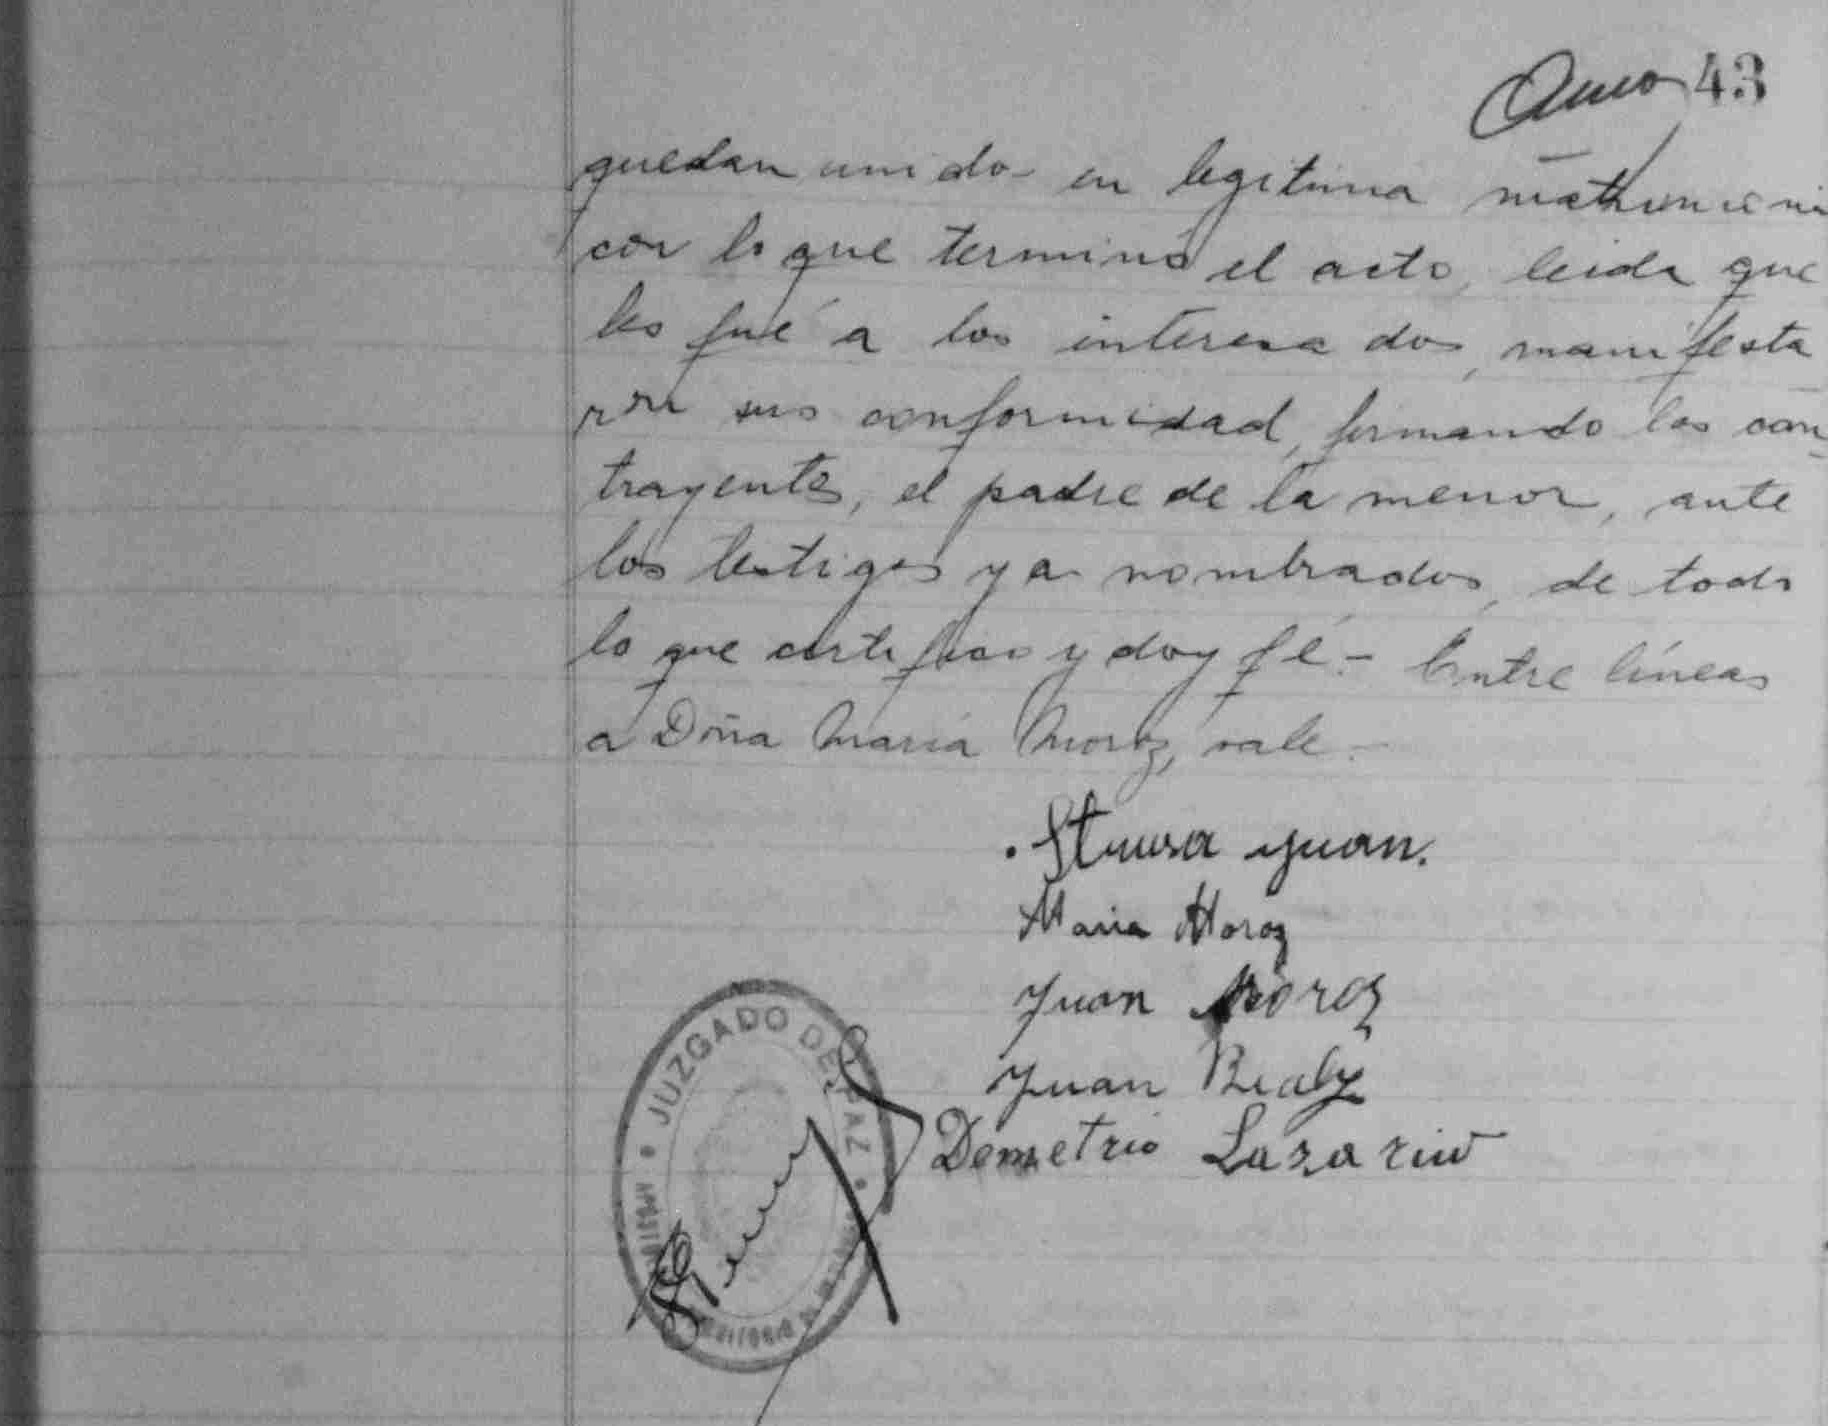 43
quedan unido en legitima matrimoni
con lo que terminó el acto, leida que
les fué a los interesados, manifesta
ron sus conformidad, firmando los con-
trayentes, el padre de la menor, ante
los testigos ya nombrados, de todo
lo que certifico y doy fé.- Entre líneas
a Doña María Moroz, vale.-
Juan.
Maria Moroz
Juan Moroz
Juan Bialy
Demetrio Lazariw
JUZGADO DE PAZ